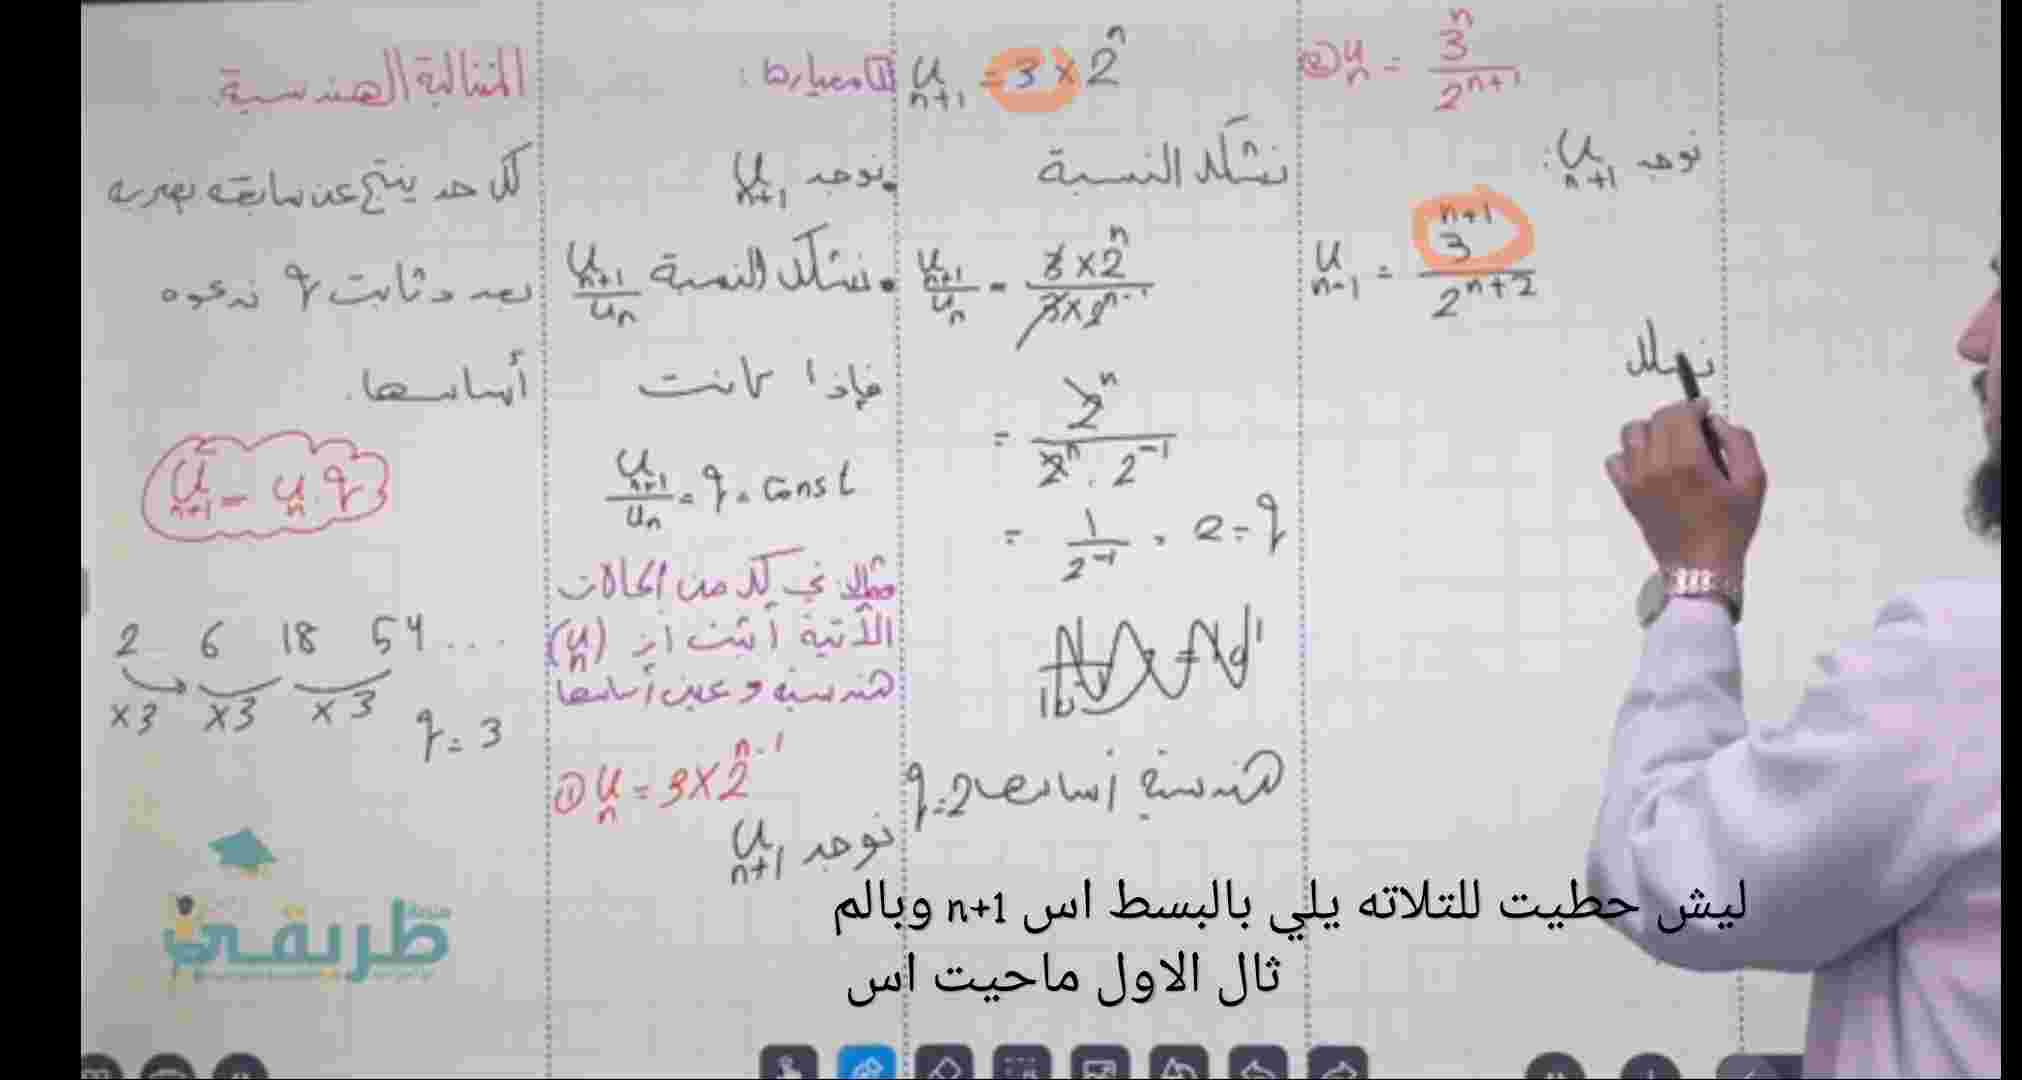 المتتالية الهندسية
كل حد ينتج عن سابقه بضربه
بعدد ثابت q ندعوه
أساسها.
u_{n+1} = u_n . q
2 6 18 54 ...
×3 ×3 ×3
q = 3
① معيارها:
• نوجد u_{n+1}
• نشكل النسبة u_{n+1}/u_n
فإذا كانت
u_{n+1}/u_n = q = const
مثال في كل من الحالات
الآتية أثبت أن (u_n)
هندسية وعين أساسها
① u_n = 3×2^{n-1}
نوجد u_{n+1}
u_{n+1} = 3 × 2^n
نشكل النسبة
u_{n+1}/u_n = 3×2^n / 3×2^{n-1}
= 2^n / 2^n . 2^{-1}
= 1/2^{-1} = 2 = q
هندسية أساسها q=2
② u_n = 3^n / 2^{n+1}
نوجد u_{n+1}:
u_{n-1} = 3^{n+1} / 2^{n+2}
ليش حطيت للتلاته يلي بالبسط اس n+1 وبالم
ثال الاول ماحيت اس
طريقي